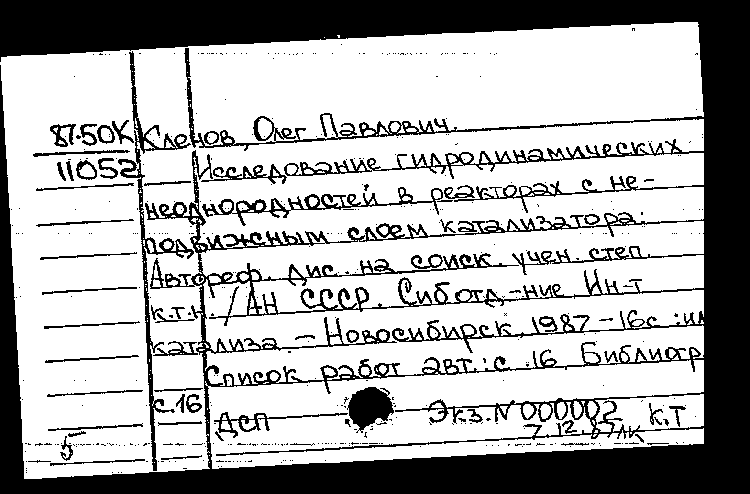 87-50К Кленов, Олег Павлович.
11052 Исследование гидродинамических
неоднородностей в реакторах с не-
подвижным слоем катализатора:
Автореф. дис. на соиск. учен. степ.
к.т.н. / АН СССР. Сиб отд-ние, Ин-т
катализа. – Новосибирск, 1987 – 16с : ил
Список работ авт.: с. 16. Библиогр
с.16
ДСП Экз. N 000002 К.Т
7.12.87
5